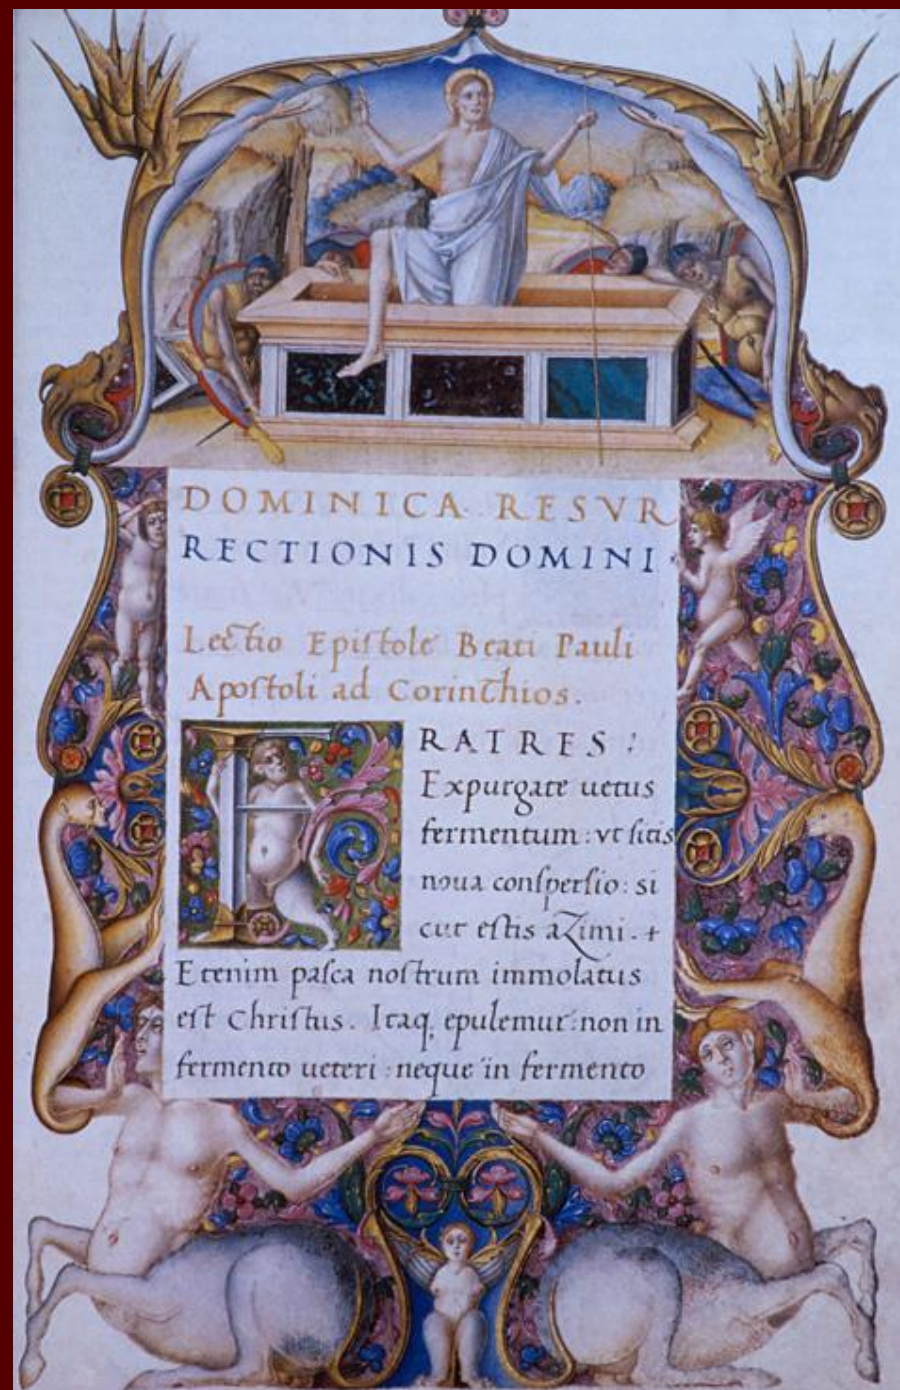 DOMINICA RESVR
RECTIONIS DOMINI
Lectio Epistole Beati Pauli
Apostoli ad Corinthios.
FRATRES:
Expurgate uetus
fermentum: vt sitis
noua conspersio: si
cut estis aZimi. +
Etenim pasca nostrum immolatus
est Christus. Itaq; epulemur: non in
fermento ueteri: neque in fermento